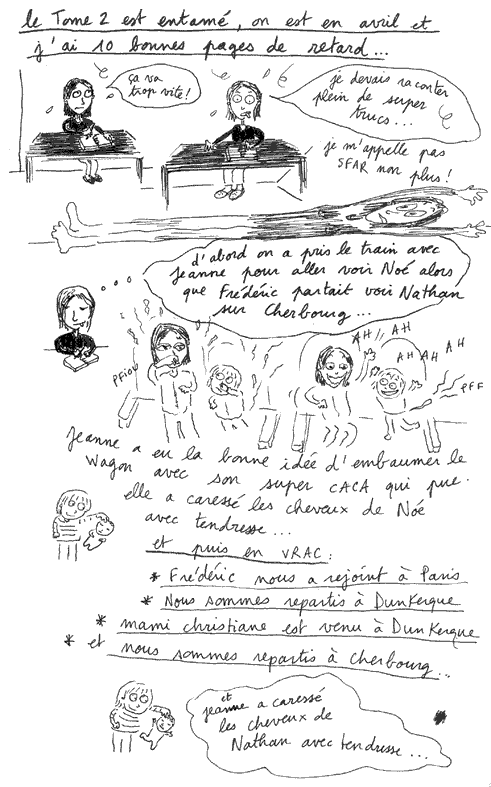 le Tome 2 est entamé, on est en avril et
j'ai 10 bonnes pages de retard...
ça va
trop vite!
je devais raconter
plein de super
trucs...
je m'appelle pas
SFAR non plus!
d'abord on a pris le train avec
Jeanne pour aller voir Noé alors
que Frédéric partait voir Nathan
sur Cherbourg...
PFIOU
AH AH
AH AH AH
PFF
Jeanne a eu la bonne idée d'embaumer le
wagon avec son super CACA qui pue.
elle a caressé les cheveux de Noé
avec tendresse...
et puis en VRAC:
* Frédéric nous a rejoint à Paris
* Nous sommes repartis à Dunkerque
* mami christiane est venu à Dunkerque
* et nous sommes repartis à Cherbourg...
et
jeanne a caressé
les cheveux de
Nathan avec tendresse...